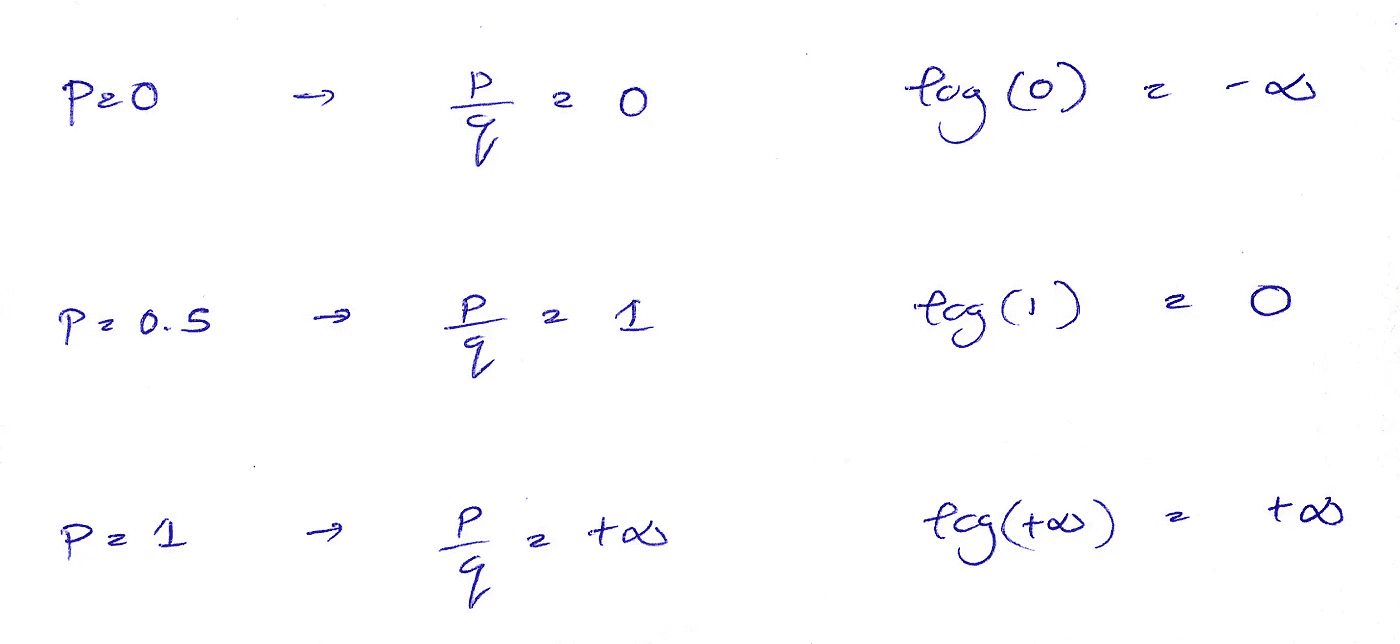 P=0 → p/q = 0 log(0) = -∞
P=0.5 → p/q = 1 log(1) = 0
P=1 → p/q = +∞ log(+∞) = +∞